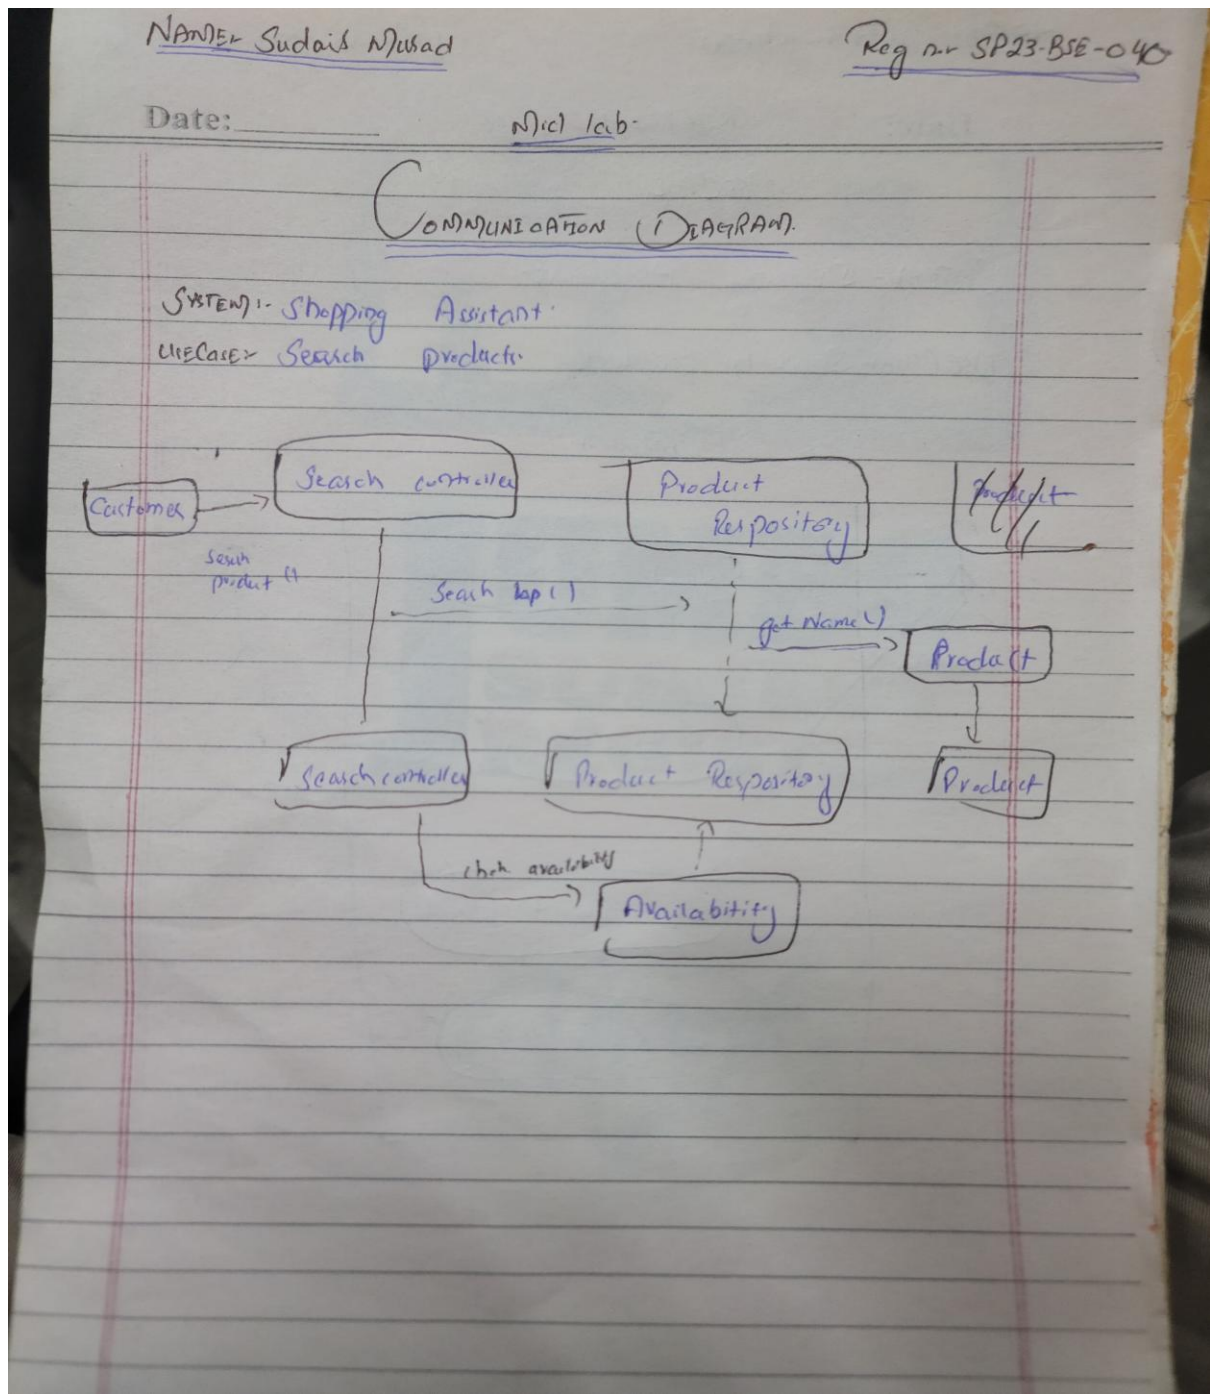 NAME:- Sudais Murad
Reg no:- SP23-BSE-040
Date:
Mid lab.
COMMUNICATION DIAGRAM.
SYSTEM:- Shopping Assistant.
USECASE:- Search products.
Customer
Search controller
Product
Respository
search
product ()
Search lap()
get Name()
Product
Search controller
Product Respository
Product
availability
Availability